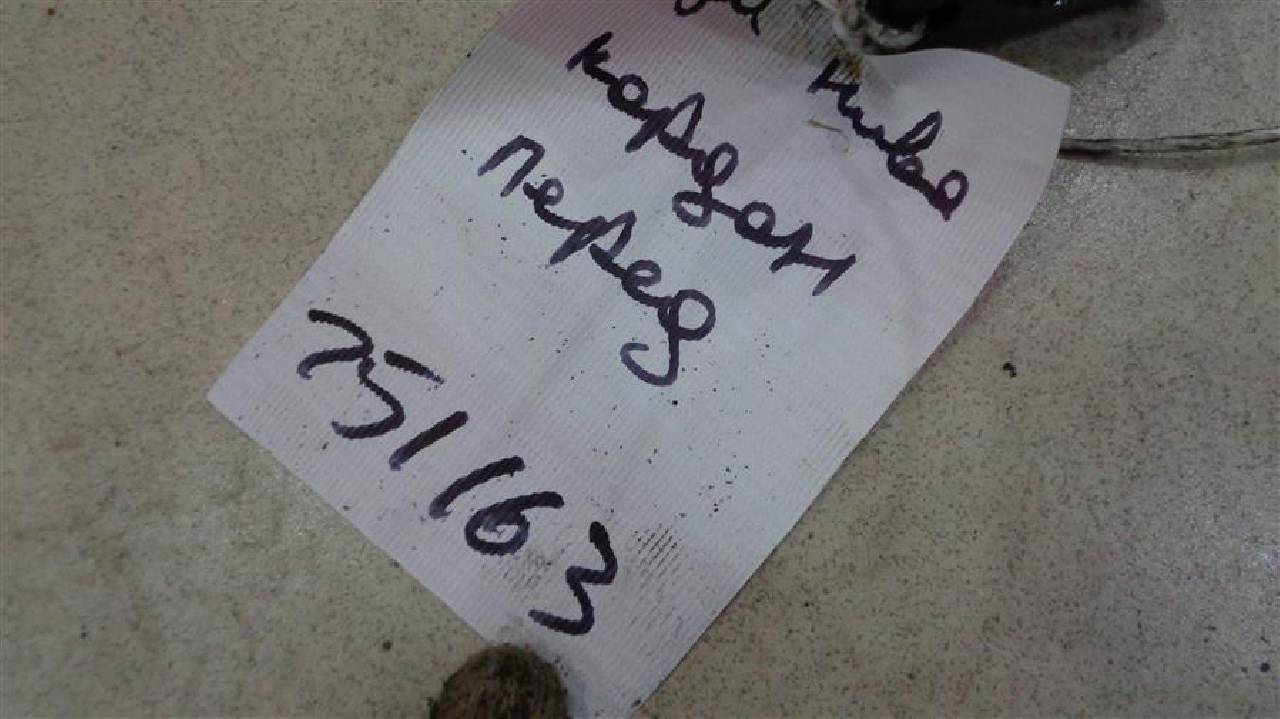 нива
кардан
перед
751163